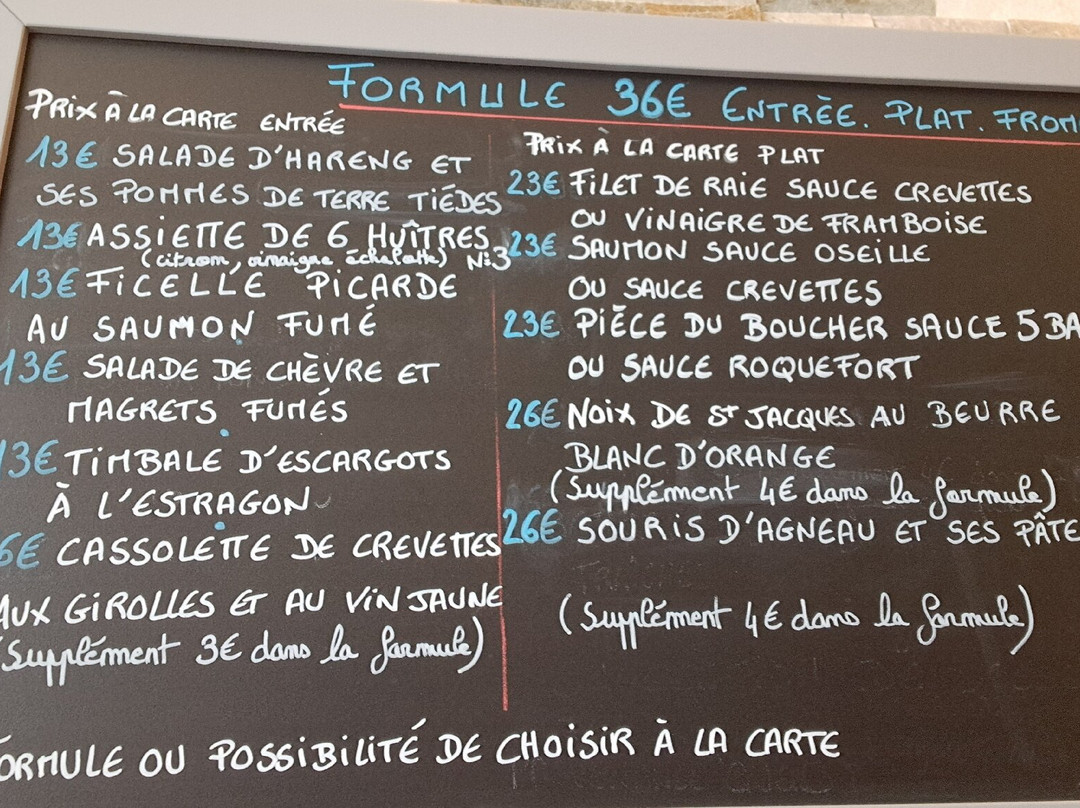 FORMULE 36€ ENTRÉE. PLAT. FROM
PRIX À LA CARTE ENTRÉE
13€ SALADE D'HARENG ET
SES POMMES DE TERRE TIÉDES
13€ ASSIETTE DE 6 HUÎTRES
(citron, vinaigre échalotte) N:3
13€ FICELLE PICARDE
AU SAUMON FUMÉ
13€ SALADE DE CHÈVRE ET
MAGRETS FUMÉS
13€ TIMBALE D'ESCARGOTS
À L'ESTRAGON
6€ CASSOLETTE DE CREVETTES
AUX GIROLLES ET AU VIN JAUNE
(Supplément 3€ dans la formule)
PRIX À LA CARTE PLAT
23€ FILET DE RAIE SAUCE CREVETTES
OU VINAIGRE DE FRAMBOISE
23€ SAUMON SAUCE OSEILLE
OU SAUCE CREVETTES
23€ PIÈCE DU BOUCHER SAUCE 5 BA
OU SAUCE ROQUEFORT
26€ NOIX DE ST JACQUES AU BEURRE
BLANC D'ORANGE
(Supplément 4€ dans la formule)
26€ SOURIS D'AGNEAU ET SES PÂTE
(Supplément 4€ dans la formule)
FORMULE OU POSSIBILITÉ DE CHOISIR À LA CARTE